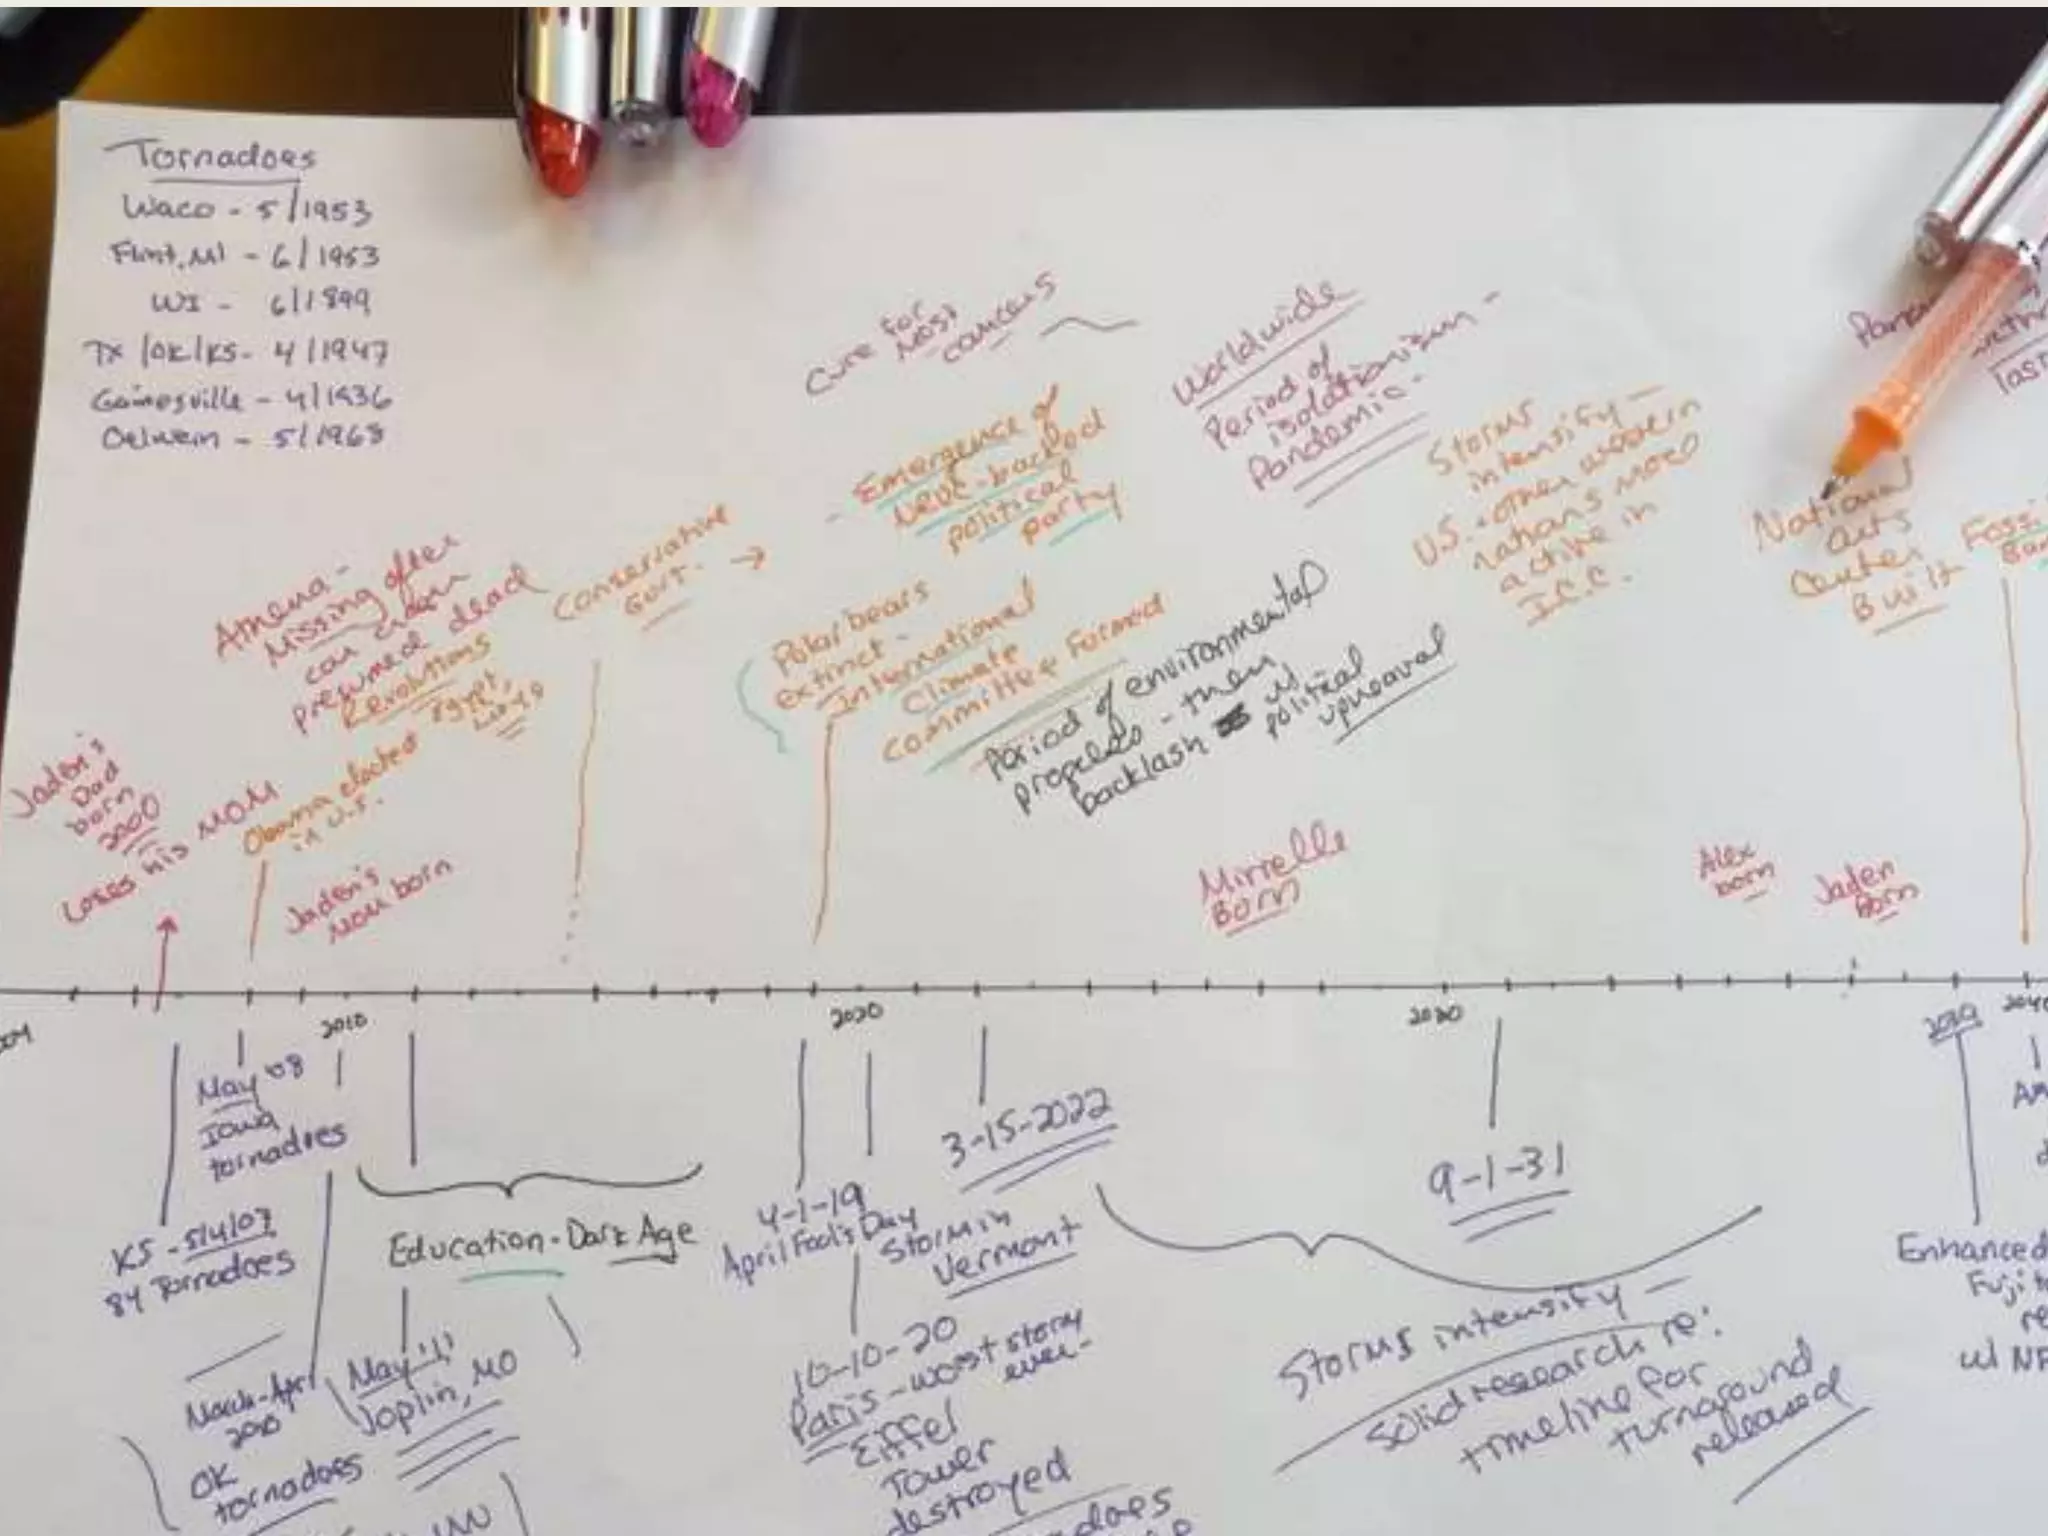 Tornadoes
Waco - 5/1953
Flint, MI - 6/1953
WI - 6/1899
TX/OK/KS - 4/1947
Gainesville - 4/1936
Oelwein - 5/1968
Cure for
most
cancers
Worldwide
Period of
isolationism -
Pandemic -
Emergence of
-backed
political
party
Storms
intensify -
U.S. + other western
nations more
active in
I.C.C.
National
arts
center
Built
Conservative
Govt. →
Athena -
Missing after
car
presumed dead
Revolutions
Egypt,
Libya
Polar bears
extinct -
International
Climate
Committee Formed
Period of environmental
- then
backlash w/
political
upheaval
Jaden's
Dad
born
2000
Loses his MOM
Obama elected
in U.S.
Jaden's
Mom born
Mirrelle
Born
Alex
born
Jaden
Born
2010
2020
2030
2039
May '08
Iowa
tornadoes
KS - 5/4/07
84 Tornadoes
Education - Dark Age
March-April
2010
OK
tornadoes
May '11
Joplin, MO
4-1-19
April Fool's Day
3-15-2022
Storm in
Vermont
10-10-20
Paris - worst storm
ever -
Eiffel
Tower
destroyed
9-1-31
Storms intensify -
Solid research re:
timeline for
turnaround
released
Enhanced
Fuji
w/